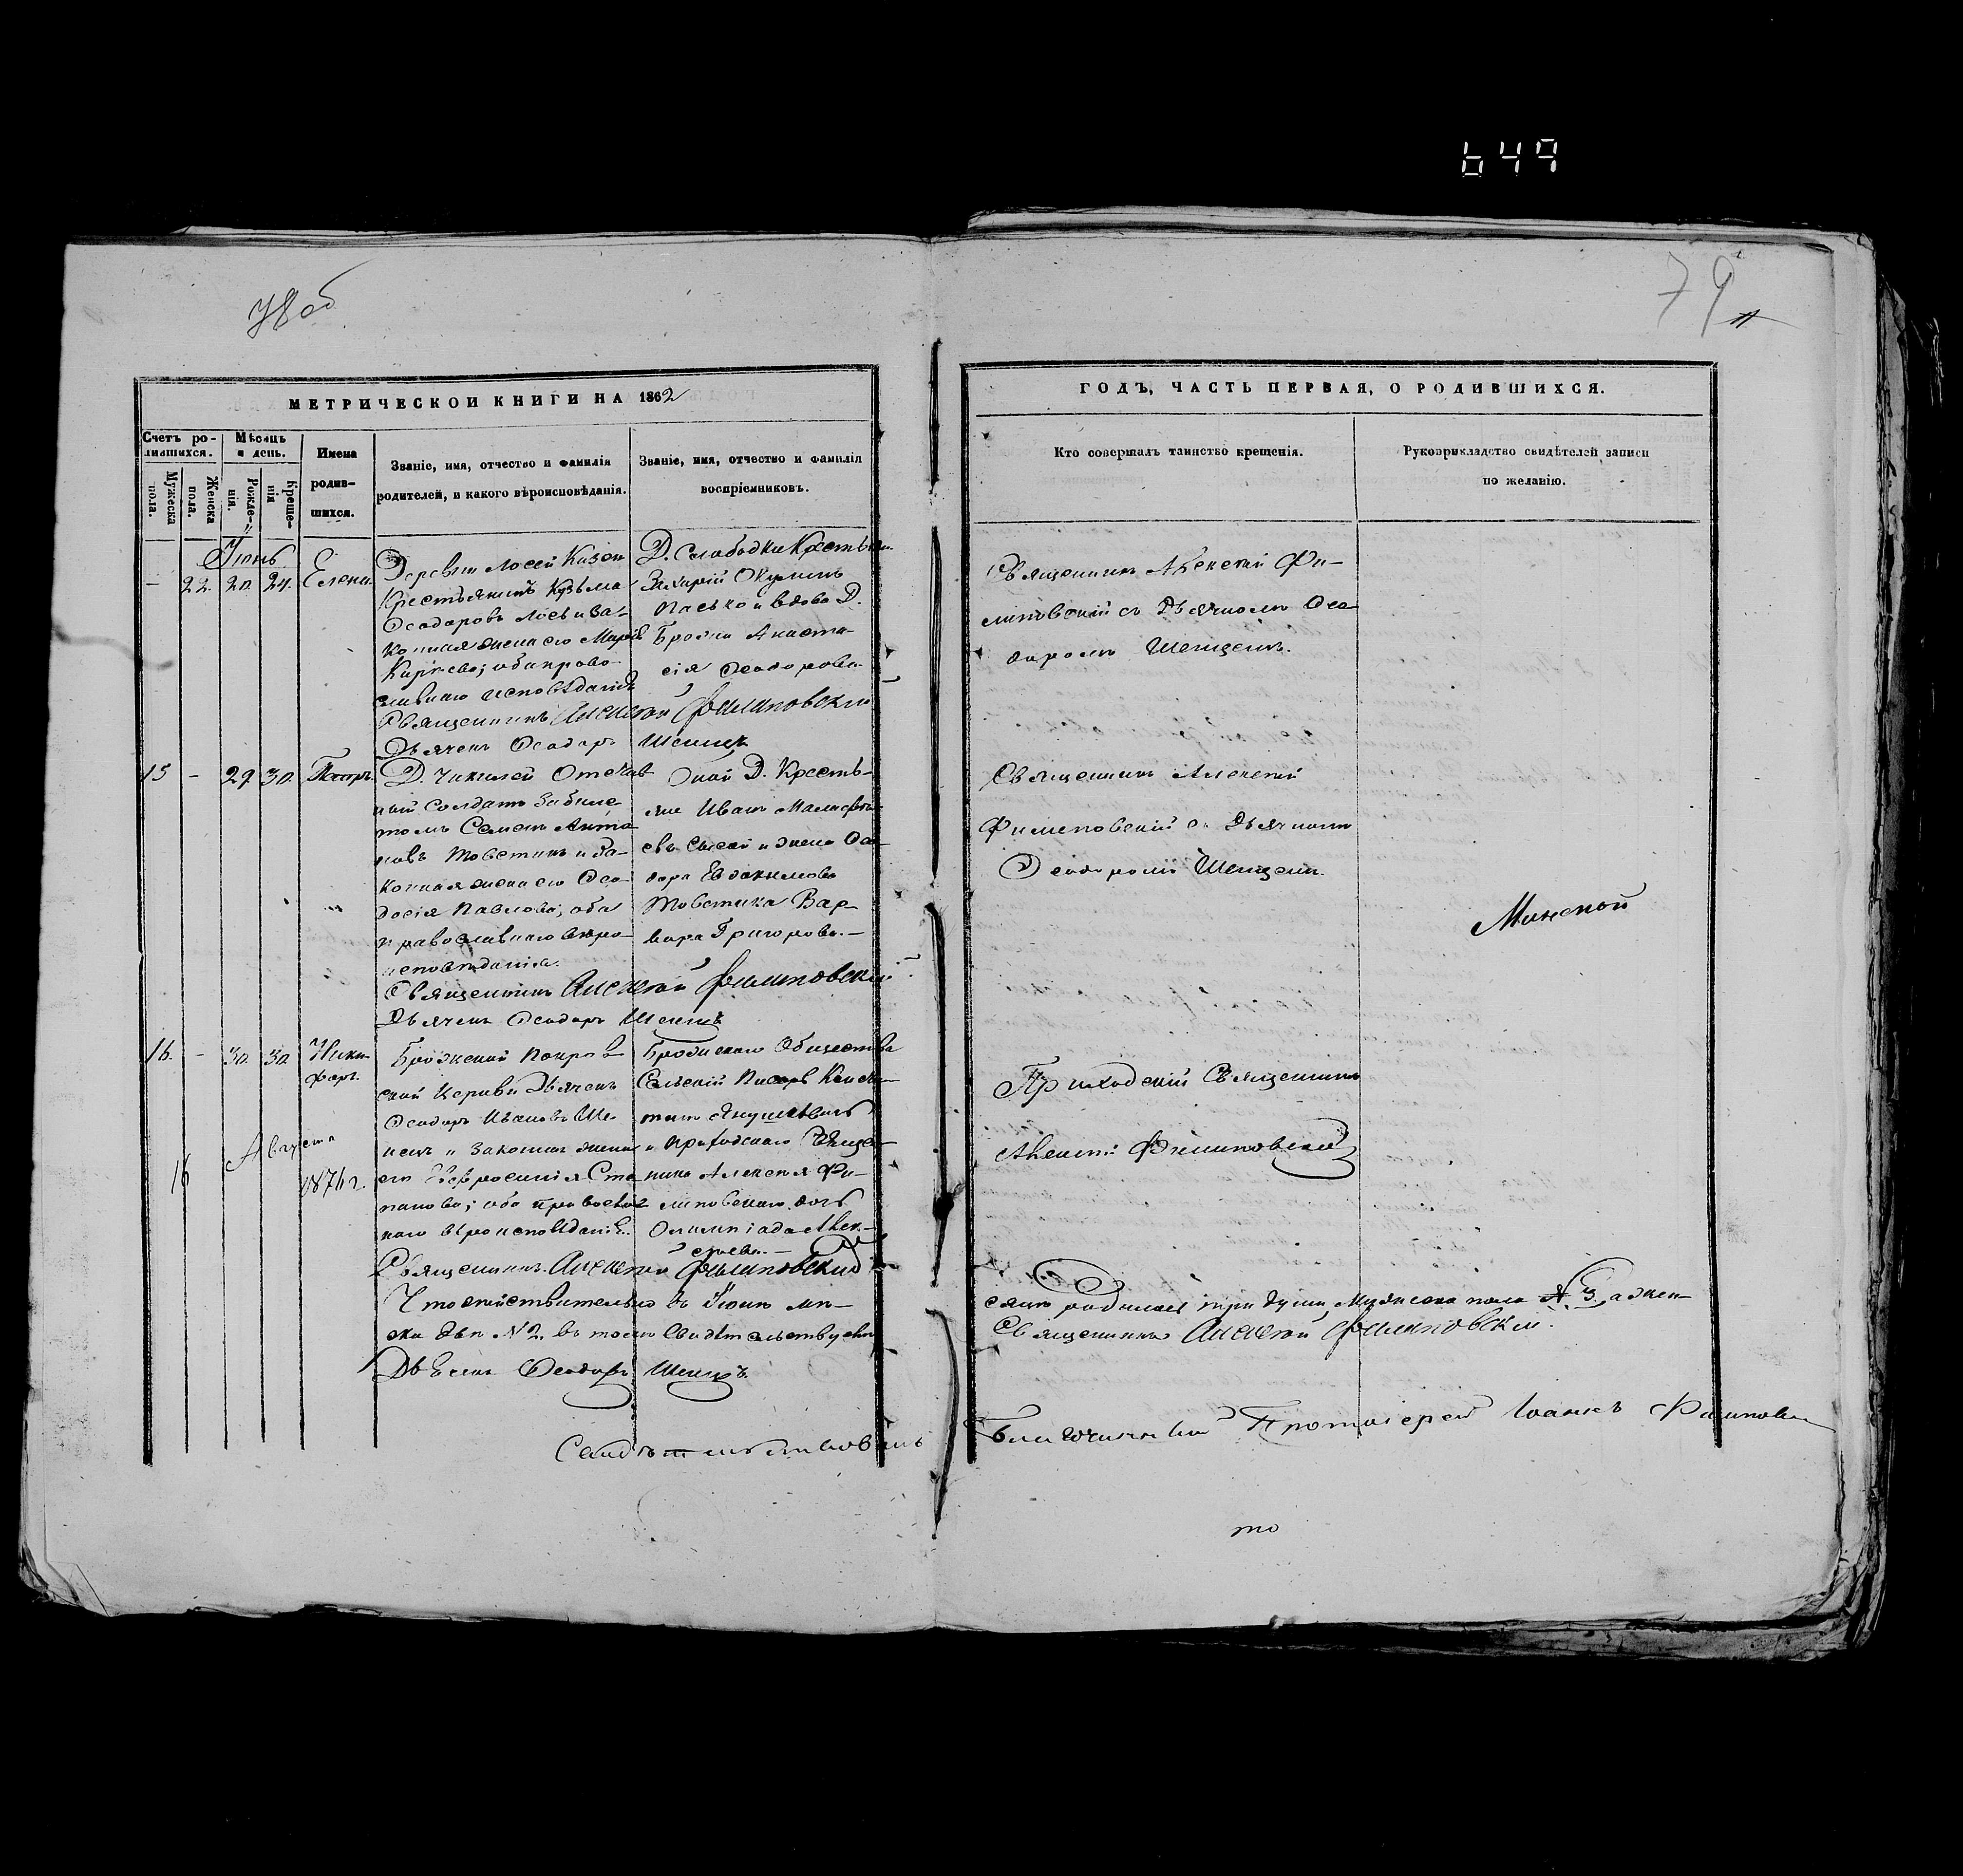 649
78 об
79
МЕТРИЧЕСКОЙ КНИГИ НА 1862
ГОДЪ, ЧАСТЬ ПЕРВАЯ, О РОДИВШИХСЯ.
Счетъ ро-
дившихся.
Мѣсяцъ
и день.
Мужеска
пола.
Женска
пола.
Рожде-
нія.
Креще-
нія
Имена
родив-
шихся.
Званіе, имя, отчество и фамилія
родителей, и какого вѣроисповѣданія.
Званіе, имя, отчество и фамилія
воспріемниковъ.
Кто совершалъ таинство крещенія.
Рукоприкладство свидѣтелей записи
по желанію.
Іюнь
- 22. 20. 24. Елена.
Деревни Лосей Казен
Крестьянинъ Кузьма
Ѳеодоровъ Лось и за-
конная жена его Марія
обаправо-
славнаго исповѣданія
Священникъ Алексей Филиповский
Дьячекъ Ѳеодоръ Шенецъ
Д. Слободки Крестьян.
Захарій
Пасько и вдова Д.
Брожи Анаста-
сія Ѳеодорова.
Священникъ Алексей Фи-
липовский съ Дьячкомъ Ѳео
доромъ Шенцемъ.
15 - 29 30. Петръ.
Отстав
ный Солдатъ забиле-
томъ Семенъ Анто
новъ Товстикъ и за-
конная жена его Ѳео-
досія Павлова; оба
православнаго вѣро-
исповѣданія.
Священникъ Алексей Филиповский
Дьячекъ Ѳеодоръ Шенецъ
Оной Д. Крестья-
не Иванъ
дора Евдокимова
Товстика Вар-
вара Григорова.-
Священникъ Алексей
Филиповский съ Дьячкомъ
Ѳеодоромъ Шенцемъ.
Минской
16. - 30. 30. Ники-
форъ.
Брожской Покров
ской Церкви Дьячекъ
Ѳеодоръ Ивановъ Ше-
нецъ и Законная жена
его Евфросинія Сте
панова; оба православ
наго вѣроисповѣданія.
Священникъ Алексей Филиповский
Брожскаго Общества
Сельскій Писарь Конста-
нтинъ Янушкевичъ
и приходскаго Священ-
ника Алексея Фи-
липовскаго дочь
Олимпіада Алек-
сеева.-
Приходский Священникъ
Алексей Филиповский
16 Августа
1876 г.
Что действительно въ Іюнѣ мѣ-
сяцѣ родилось три души, Мужеска пола № 3, а жен-
ска две № 2. въ томъ Свидетельствуемъ
Священникъ Алексей Филиповский.
Дьячекъ Ѳеодоръ Шенецъ.
Свидѣтельствовалъ Благочинный Протоіерей Іоаннъ Филипови
то